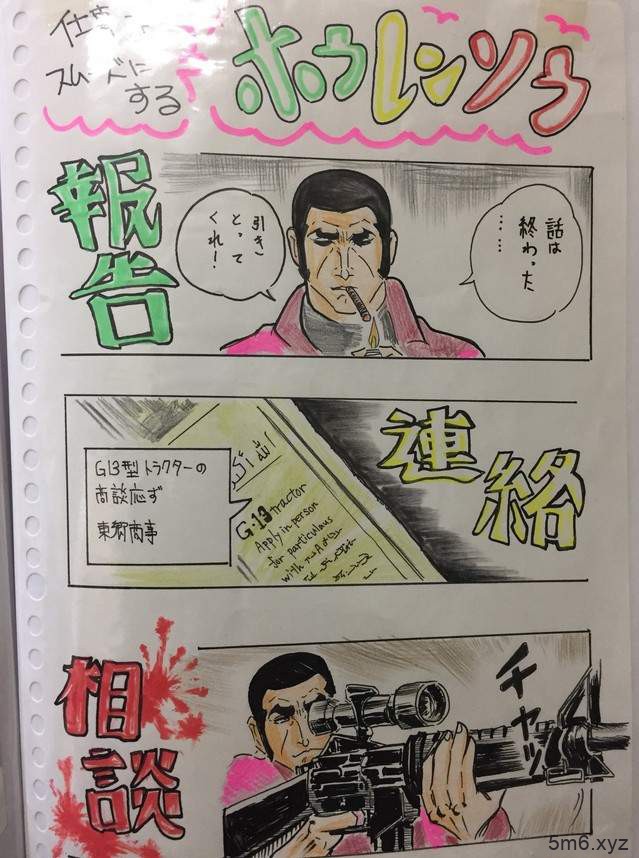 仕事
スムーズに
する
ホウレンソウ
報告
話は
終わった
……
引き
とって
くれ!
連絡
G13型トラクターの
商談応ず
東郷商事
G·13 tractor
Apply in person
for particulaus
with
相談
チャッ
5m6.xyz